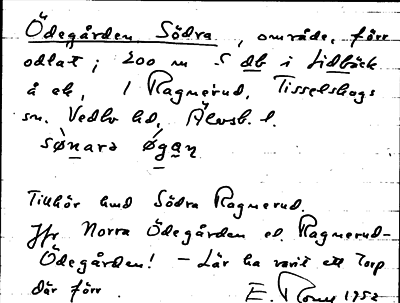 Ödegården, Södra, område, förr
odlat; 200 m S db i Lidbäck
å ek, 1 Ragnerud, Tisselskogs
sn. Vedbo hd, Älvsb. l.
sønara øgan
Tillhör hmd Södra Ragnerud.
Jfr Norra Ödegården el. Ragnerud-
Ödegården! - Lär ha varit ett torp
där förr. E. 1952